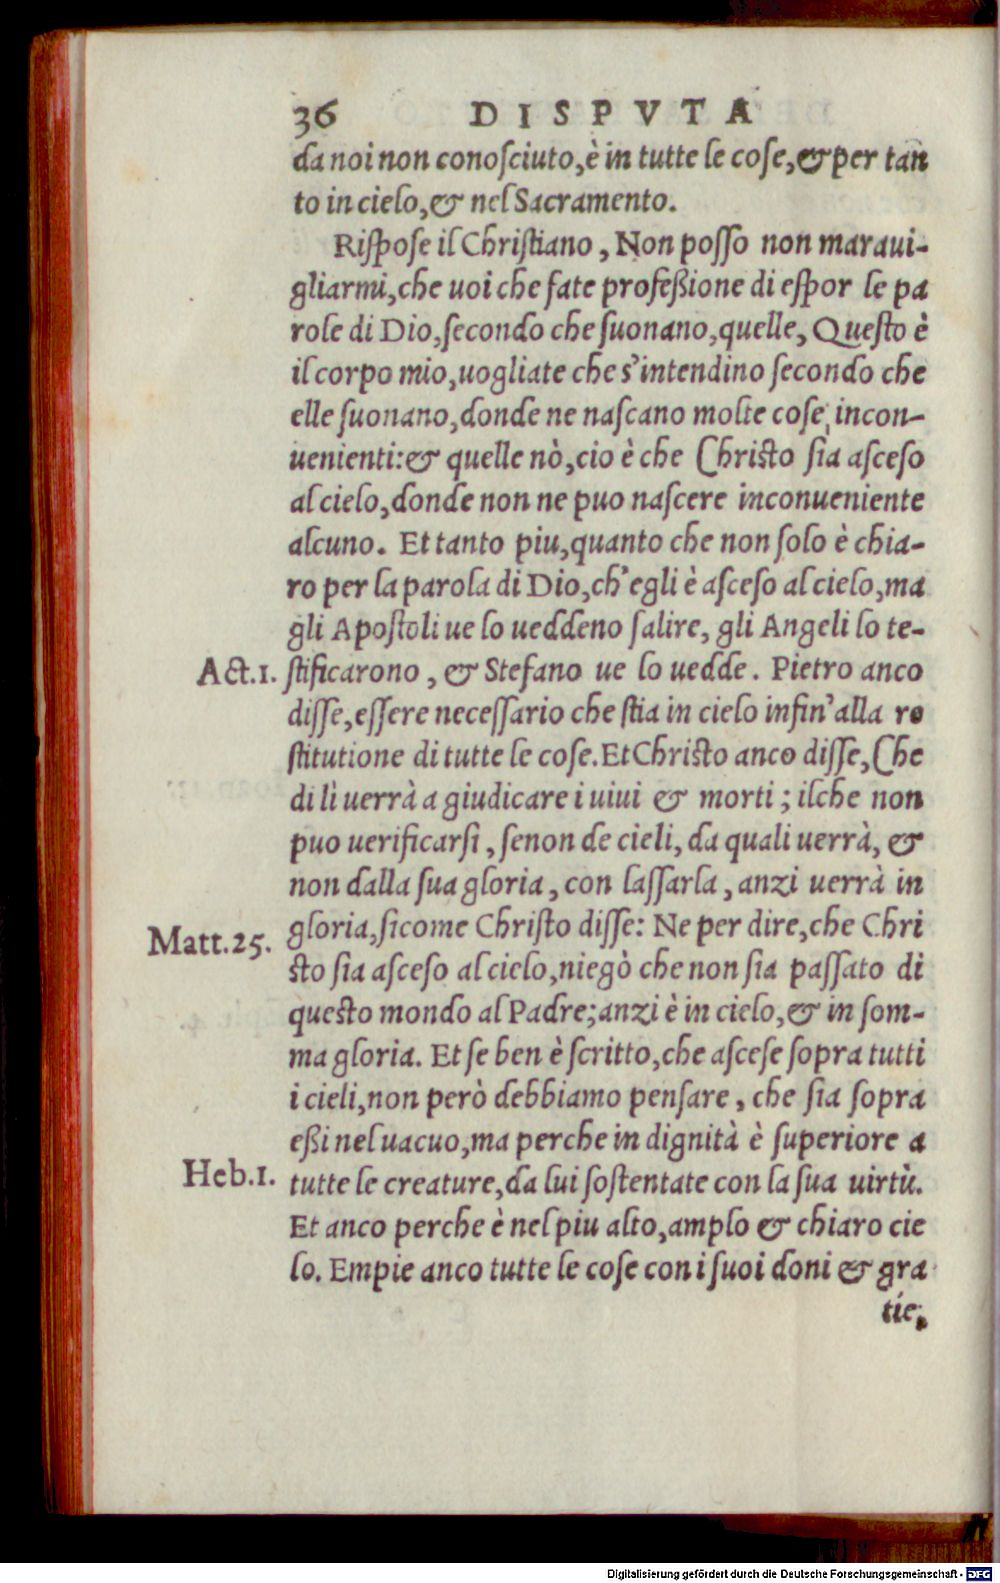 36 DISPVTA
da noi non conosciuto, è in tutte le cose, & per tan
to in cielo, & nel Sacramento.
Rispose il Christiano, Non posso non maraui-
gliarmi, che uoi che fate professione di espor le pa
role di Dio, secondo che suonano, quelle, Questo è
il corpo mio, uogliate che s'intendino secondo che
elle suonano, donde ne nascano molte cose incon-
uenienti: & quelle nò, cio è che Christo sia asceso
al cielo, donde non ne puo nascere inconueniente
alcuno. Et tanto piu, quanto che non solo è chia-
ro per la parola di Dio, ch'egli è asceso al cielo, ma
gli Apostoli ue lo ueddeno salire, gli Angeli lo te-
Act.1. stificarono, & Stefano ue lo uedde. Pietro anco
disse, essere necessario che stia in cielo infin'alla re
stitutione di tutte le cose. Et Christo anco disse, Che
di lì uerrà a giudicare i uiui & morti; ilche non
puo uerificarsi, senon de cieli, da quali uerrà, &
non dalla sua gloria, con lassarla, anzi uerrà in
Matt.25. gloria, sicome Christo disse: Ne per dire, che Chri
sto sia asceso al cielo, niegò che non sia passato di
questo mondo al Padre; anzi è in cielo, & in som-
ma gloria. Et se ben è scritto, che ascese sopra tutti
i cieli, non però debbiamo pensare, che sia sopra
essi nel uacuo, ma perche in dignità è superiore a
Heb.1. tutte le creature, da lui sostentate con la sua uirtù.
Et anco perche è nel piu alto, amplo & chiaro cie
lo. Empie anco tutte le cose con i suoi doni & gra
tie,
Digitalisierung gefördert durch die Deutsche Forschungsgemeinschaft - DFG